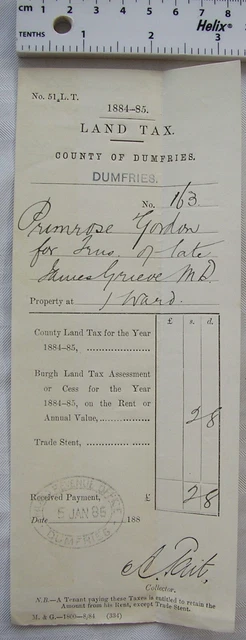 cm 1 2 3 4 5 6 7 8
Helix
TENTHS 1 2 3
No. 51, L.T.
1884-85.
LAND TAX.
COUNTY OF DUMFRIES.
DUMFRIES.
No. 163
Primrose Gordon
for Trus. of late
James Grieve M.D.
Property at 1 Ward.
£ s. d.
County Land Tax for the Year
1884-85,
Burgh Land Tax Assessment
or Cess for the Year
1884-85, on the Rent or
Annual Value, 2 8
Trade Stent,
Received Payment, £ 2 8
INLAND REVENUE OFFICE
5 JAN 85
DUMFRIES
Date 188
A. Tait,
Collector.
N.B.—A Tenant paying these Taxes is entitled to retain the
Amount from his Rent, except Trade Stent.
M. & G.—1800—8/84 (334)